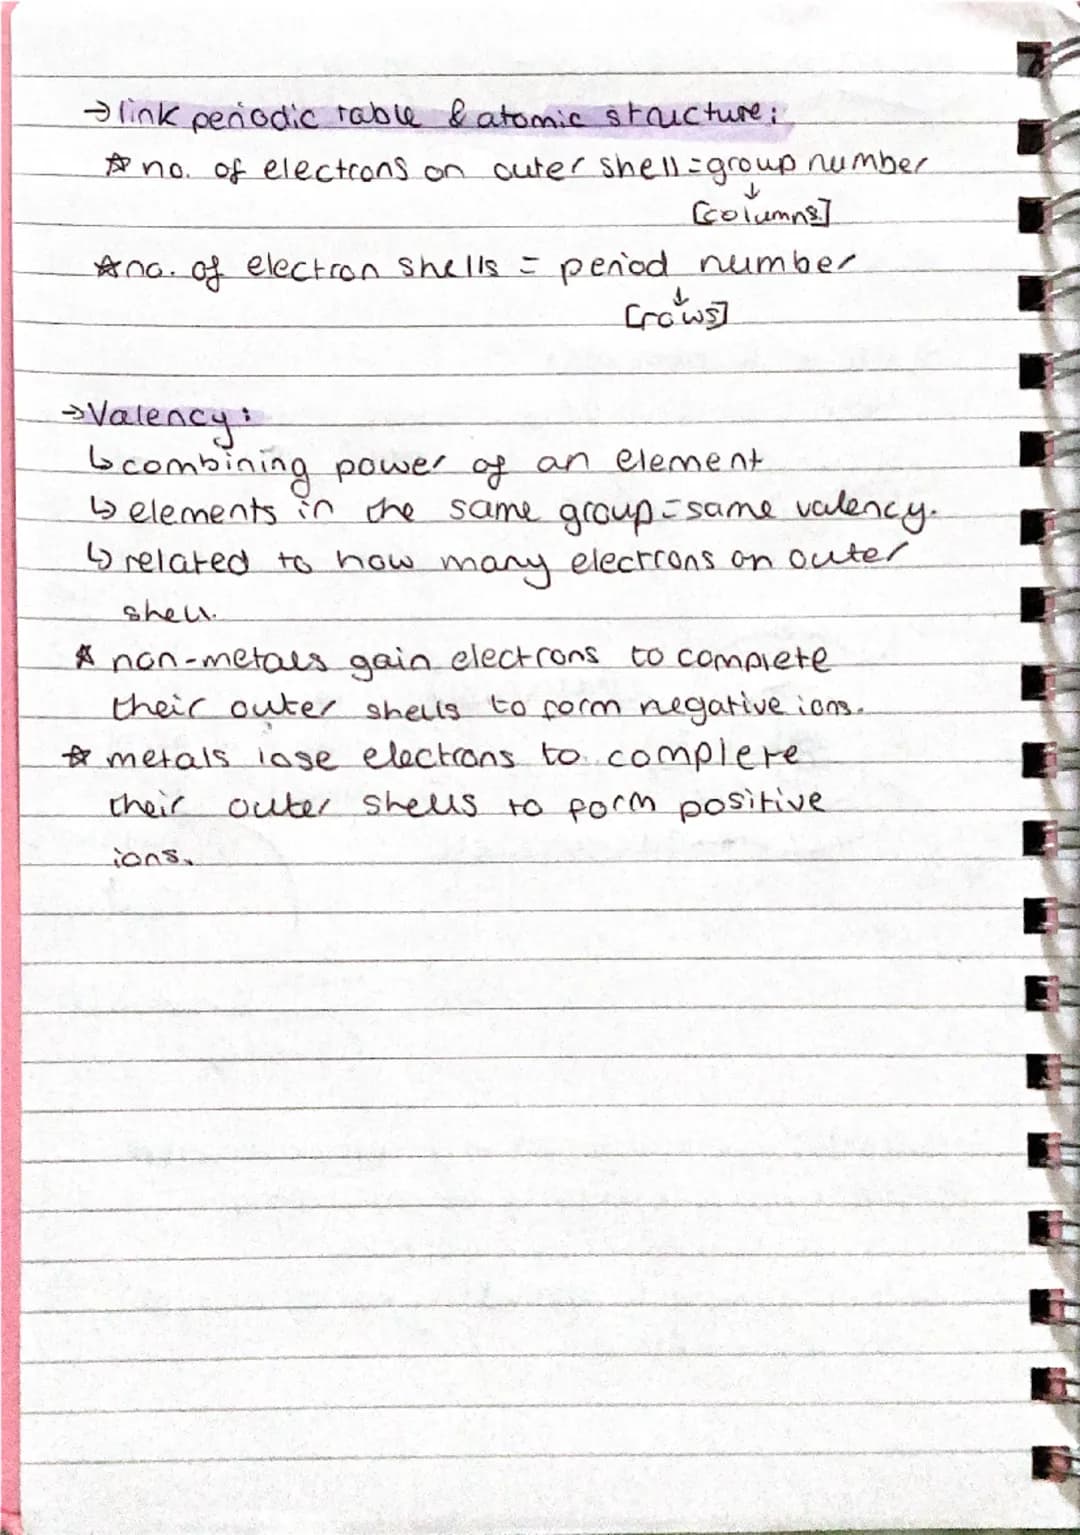 → link periodic table & atomic structure:
☆ no. of electrons on outer shell = group number
↓
[columns]
☆ no. of electron shells = period number
↓
[rows]
→ Valency:
↳ combining power of an element
↳ elements in the same group = same valency.
↳ related to how many electrons on outer
shell.
☆ non-metals gain electrons to complete
their outer shells to form negative ions.
☆ metals lose electrons to complete
their outer shells to form positive
ions.